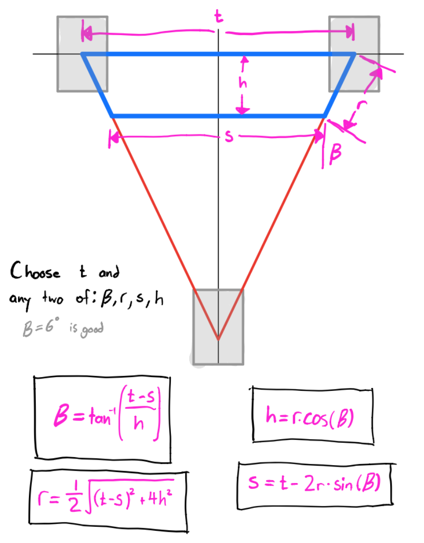 t
h
r
s
β
Choose t and
any two of: β, r, s, h
B=6° is good
B = tan⁻¹((t-s)/h)
h = r·cos(B)
r = 1/2 √((t-s)² + 4h²)
s = t - 2r·sin(B)